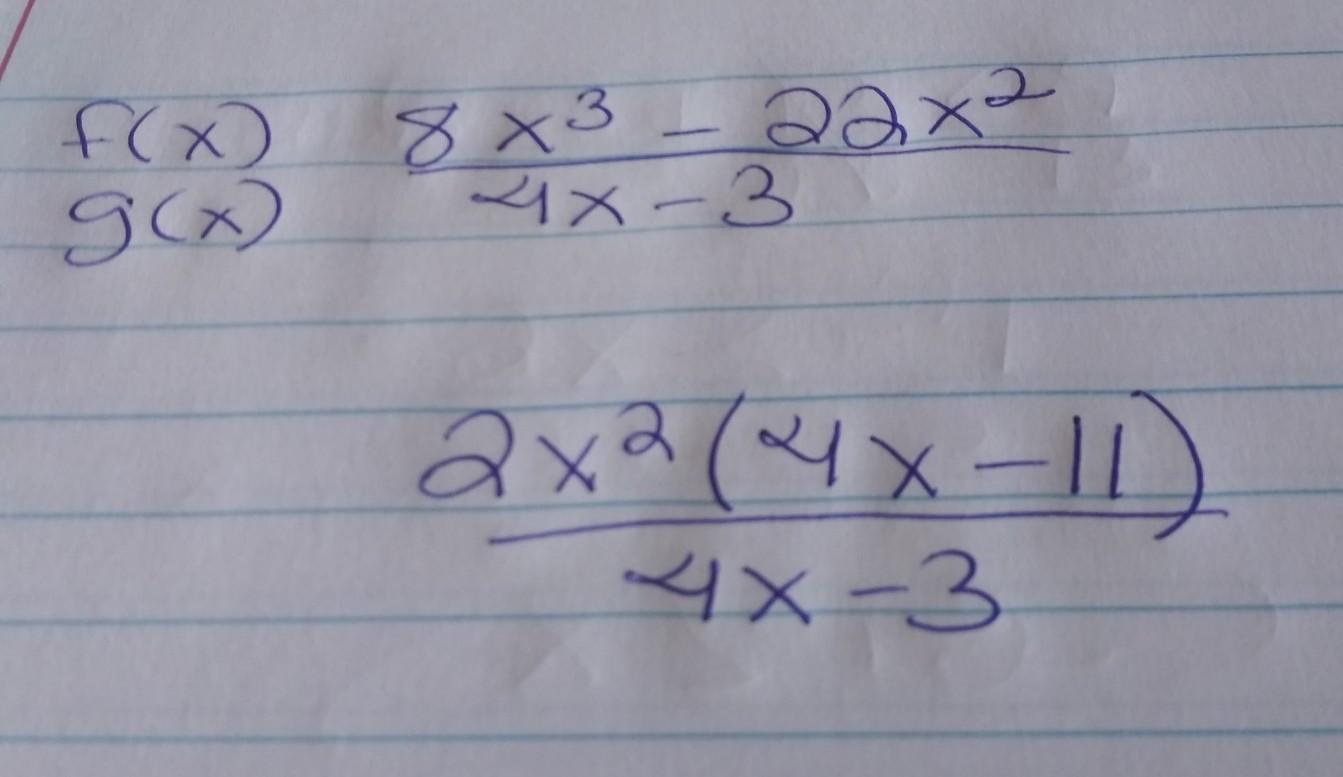 f(x) 8x³ - 22x²
g(x) 4x - 3
2x²(4x - 11)
4x - 3